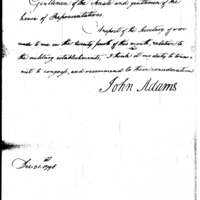 Gentlemen of the Senate and gentlemen of the
house of Representatives.
A report of the Secretary of war
made to me on the twenty fourth of this month, relative to
the military establishment, I think it my duty to trans-
mit to congress, and recommend to their consideration
John Adams
Dec. 31st 1798